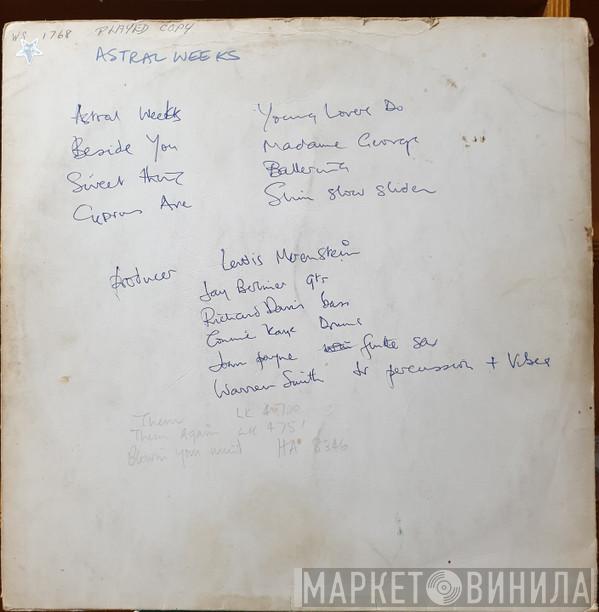 WS 1768 PLAYED COPY
ASTRAL WEEKS
Astral Weeks
Beside You
Sweet thing
Cyprus Ave
Young Lovers Do
Madame George
Ballerina
Slim slow slider
producer Lewis Merenstein
Jay Berliner gtr
Richard Davis bass
Connie Kaye Drums
John Payne flute sax
Warren Smith Jr percussion + Vibes
Them LK 4700
Them Again LK 4751
Blowin your mind HA 8346
МАРКЕТ ВИНИЛА